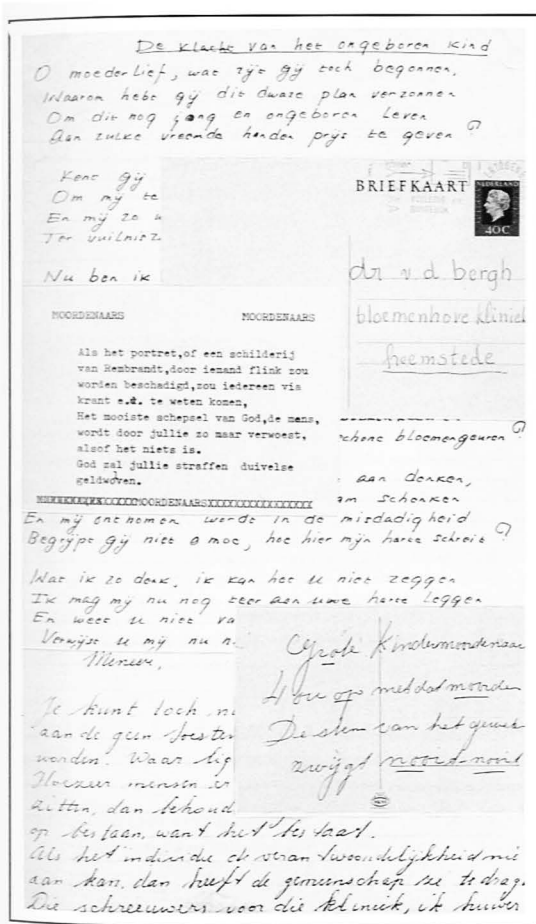 De klacht van het ongeboren kind
O moederlief, wat zijt gij toch begonnen,
Waarom hebt gij dit dwaze plan verzonnen
Om dit nog jong en ongeboren leven
Aan zulke vreemde handen prijs te geven?
Kent gij
Om mij te
En mij zo
Ter vuilnis
Nu ben ik
BRIEFKAART
NEDERLAND
40C
dr v.d bergh
bloemenhove kliniek
heemstede
MOORDENAARS MOORDENAARS
Als het portret,of een schilderij
van Rembrandt,door iemand flink zou
worden beschadigd,zou iedereen via
krant e.d. te weten komen,
Het mooiste schepsel van God,de mens,
wordt door jullie zo maar verwoest,
alsof het niets is.
God zal jullie straffen duivelse
geldwolven.
MOORDENAARS
schone bloemengeuren?
aan denken,
schenken
En mij ontnomen worde in de misdadigheid
Begrijpt gij niet o moe, hoe hier mijn harte schreit?
Wat ik zo denk, ik kan het u niet zeggen
Ik mag mij nu nog teer aan uwe harte leggen
En weet u niet va
Verwijst u mij nu n
Meneer,
Je kunt toch n
aan de geen
worden. Waar lig
Hoezeer mensen er
zitten, dan behoud
op bestaan, want het bestaat.
Als het individu de verantwoordelijkheid nie
aan kan, dan heeft de gemeenschap die te drag
Die schreeuwers voor die kliniek, ik huiver
Grote Kindermoordenaar
Hou op met dat moorden
De stem van het gewet
zwijgt nooit nooit